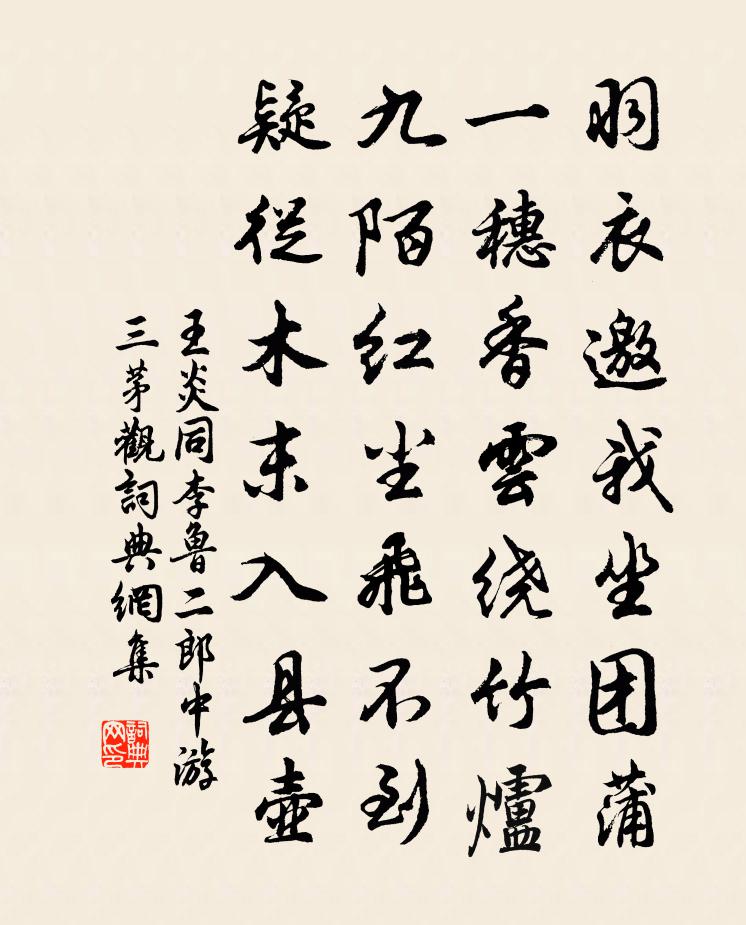 羽衣邀我坐团蒲
一穗香雲绕竹爐
九陌红尘飛不到
疑從木末入县壺
王炎同李魯二郎中游
三茅觀詞典網集
詞典
网印